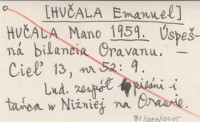 [HUČALA Emanuel]
HUČALA Mano 1959. Úspeš-
ná bilancia Oravanu. —
Cieľ 13, nr 52: 9.
Lud. zespół pieśni i
tańca w Niżniej na Orawie.